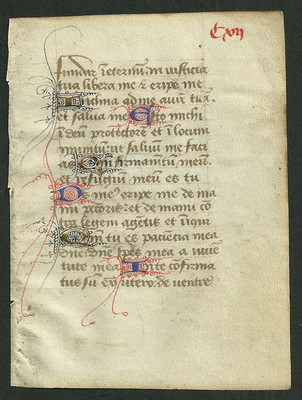 Cxvii
fundar ineternum in iusticia
tua libera me et eripe me
Inclina ad me aurem tuam
et salva me Esto michi
in deum protectorem et in locum
munitum ut salvum me faci
as Quoniam firmamentum meum
et refugium meum es tu
Deus meus eripe me de ma
nu peccatoris et de manu con
tra legem agentis et iniqui
Quoniam tu es paciencia mea
domine domine spes mea a iuven
tute mea In te confirma
tus sum ex utero de ventre